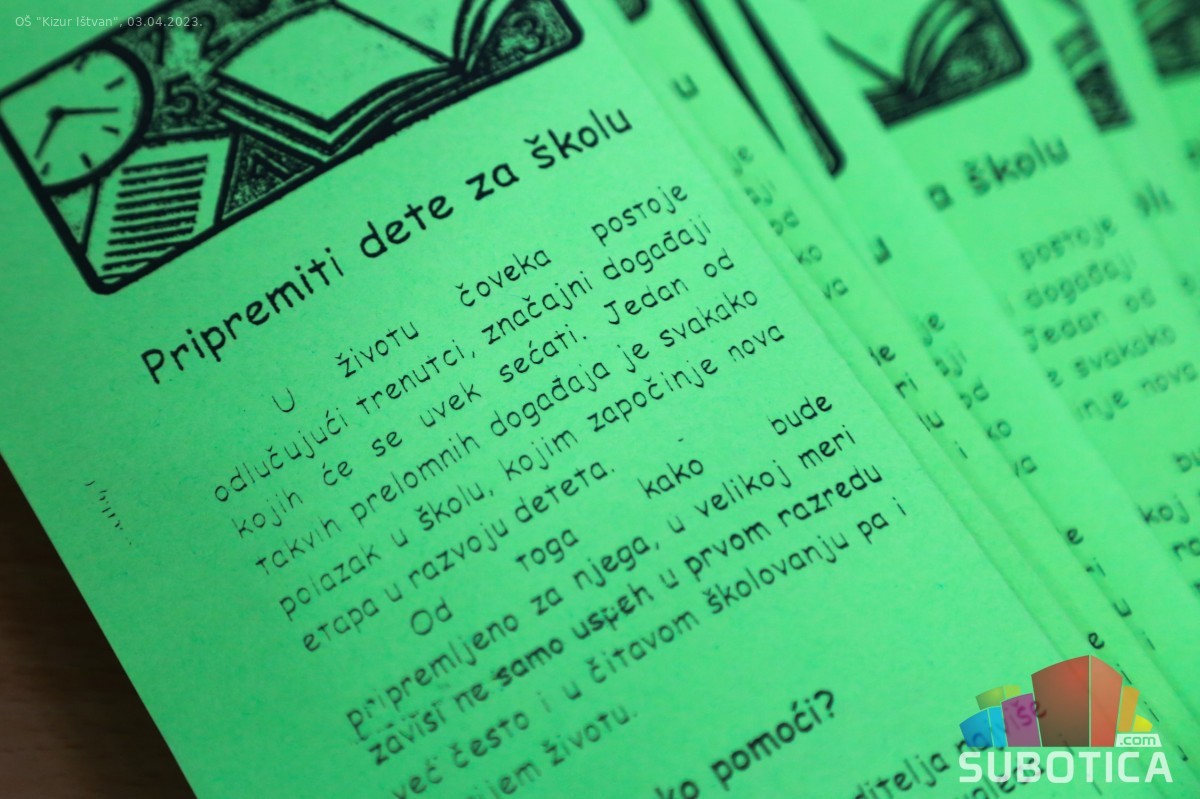 OŠ "Kizur Ištvan", 03.04.2023.
Pripremiti dete za školu
U životu čoveka postoje
odlučujući trenutci, značajni događaji
kojih će se uvek sećati. Jedan od
takvih prelomnih događaja je svakako
polazak u školu, kojim započinje nova
etapa u razvoju deteta.
Od toga kako bude
pripremljeno za njega, u velikoj meri
zavisi ne samo uspeh u prvom razredu
već često i u čitavom školovanju pa i
životu.
pomoći?
a školu
postoje
događaji
Jedan od
svakako
nova
SUBOTICA
.com